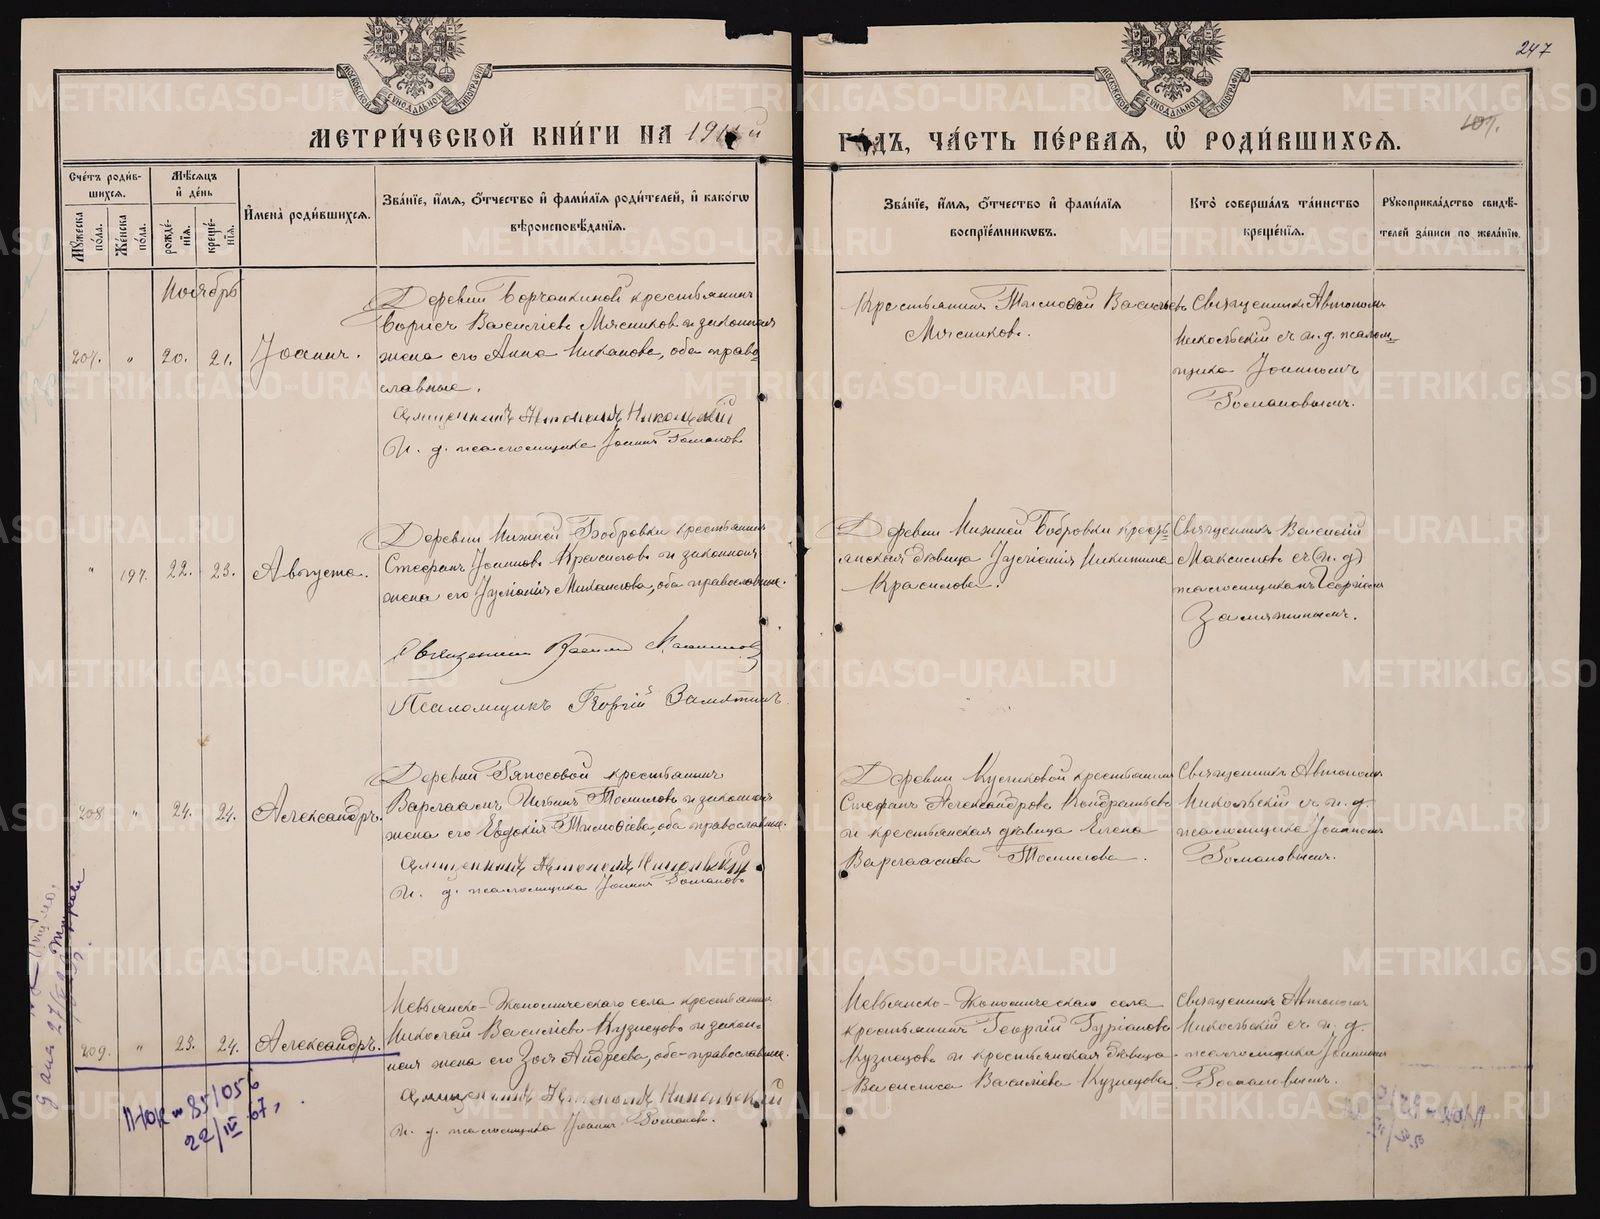 247
МОСКОВСКОЙ СѴНОДАЛЬНОЙ ТИПОГРАФІИ
МОСКОВСКОЙ СѴНОДАЛЬНОЙ ТИПОГРАФІИ
МЕТРИ́ЧЕСКОЙ КНИ́ГИ НА 191 й
ГО́ДЪ, ЧА́СТЬ ПЕ́РВАЯ, Ѡ҆ РОДИ́ВШИХСЯ.
Сче́тъ роди́в-
шихся.
Мѣ́сяцъ
и҆ де́нь
Мꙋ́жеска
по́ла.
Же́нска
по́ла.
рожде́-
нїя.
креще́-
нїя.
И҆мена̀ роди́вшихся.
Зва́нїе, и҆́мя, ѻ҆́тчество и҆ фами́лїя роди́телей, и҆ како́гѡ
вѣроисповѣ́данїя.
Зва́нїе, и҆́мя, ѻ҆́тчество и҆ фами́лїя
воспрїе́мникѡвъ.
Кто̀ соверша́лъ та́инство
креще́нїя.
Рꙋкоприкла́дство свидѣ́-
телей за́писи по жела́нїю.
Ноябрь
207. " 20. 21. Іоаннъ.
Деревни крестьянинъ
Борисъ Васильевъ Мясниковъ и законная
жена его Анна Иванова, оба право-
славные.
Священникъ Автономъ Никольскій
И. д. псаломщика Іоаннъ Романовъ
Крестьянинъ Тимофей Васильевъ
Мясниковъ.
Священникъ Автономъ
Никольскій съ и. д. псалом-
щика Іоанномъ
Романовымъ.
" 197. 22. 23. Августа.
Деревни Нижней Бобровки крестьянинъ
Стефанъ Іоанновъ Красиловъ и законная
жена его Іуліанія Михаилова, оба православные.
Священникъ Василій Максимовъ
Псаломщикъ Георгій Замятинъ.
Деревни Нижней Бобровки кресть-
янская дѣвица Іуліанія Никитина
Красилова.
Священникъ Василій
Максимовъ съ (и. д)
псаломщикомъ Георгіемъ
Замятинымъ.
208 " 24. 24. Александръ.
Деревни Ряпосовой крестьянинъ
Варлаамъ Ильинъ Томиловъ и законная
жена его Евдокія Тимофеева, оба православные.
Священникъ Автономъ Никольскій
И. д. псаломщика Іоаннъ Романовъ
Деревни Кусниковой крестьянинъ
Стефанъ Александровъ Кондратьевъ
и крестьянская дѣвица Елена
Варлаамова Томилова.
Священникъ Автономъ
Никольскій съ и. д.
псаломщика Іоанномъ
Романовымъ.
209. " 23. 24. Александръ.
Невьянско-Экономическаго села крестьянинъ
Николай Васильевъ Кузнецовъ и закон-
ная жена его Зоя Андреева, оба православные.
Священникъ Автономъ Никольскій
И. д. псаломщика Іоаннъ Романовъ.
Невьянско-Экономическаго села
крестьянинъ Георгій Гуріановъ
Кузнецовъ и крестьянская дѣвица
Василиса Васильева Кузнецова.
Священникъ Автономъ
Никольскій съ и. д.
псаломщика Іоанномъ
Романовымъ.
II-ЮК № 851056
22/IV 67 г.
METRIKI.GASO-URAL.RU